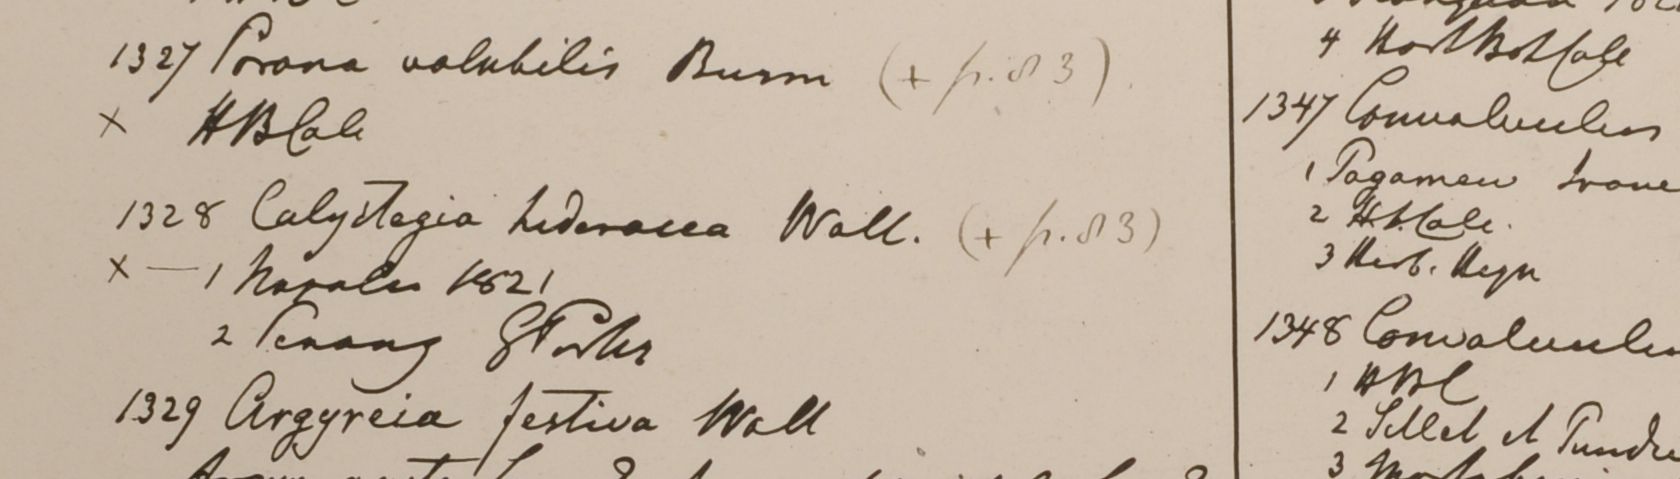 1327 Porana volubilis Burm (+ p. 83)
x HBCalc
1328 Calystegia hederacea Wall. (+ p. 83)
x — 1 Napalia 1821
2 Penang GPorter
1329 Argyreia festiva Wall
4 HortBotCalc
1347 Convolvulus
1 Pagamew
2 H.b.Calc.
3 Herb. Heyn
1348 Convolvulus
1 HBC
2 Sillet et
3